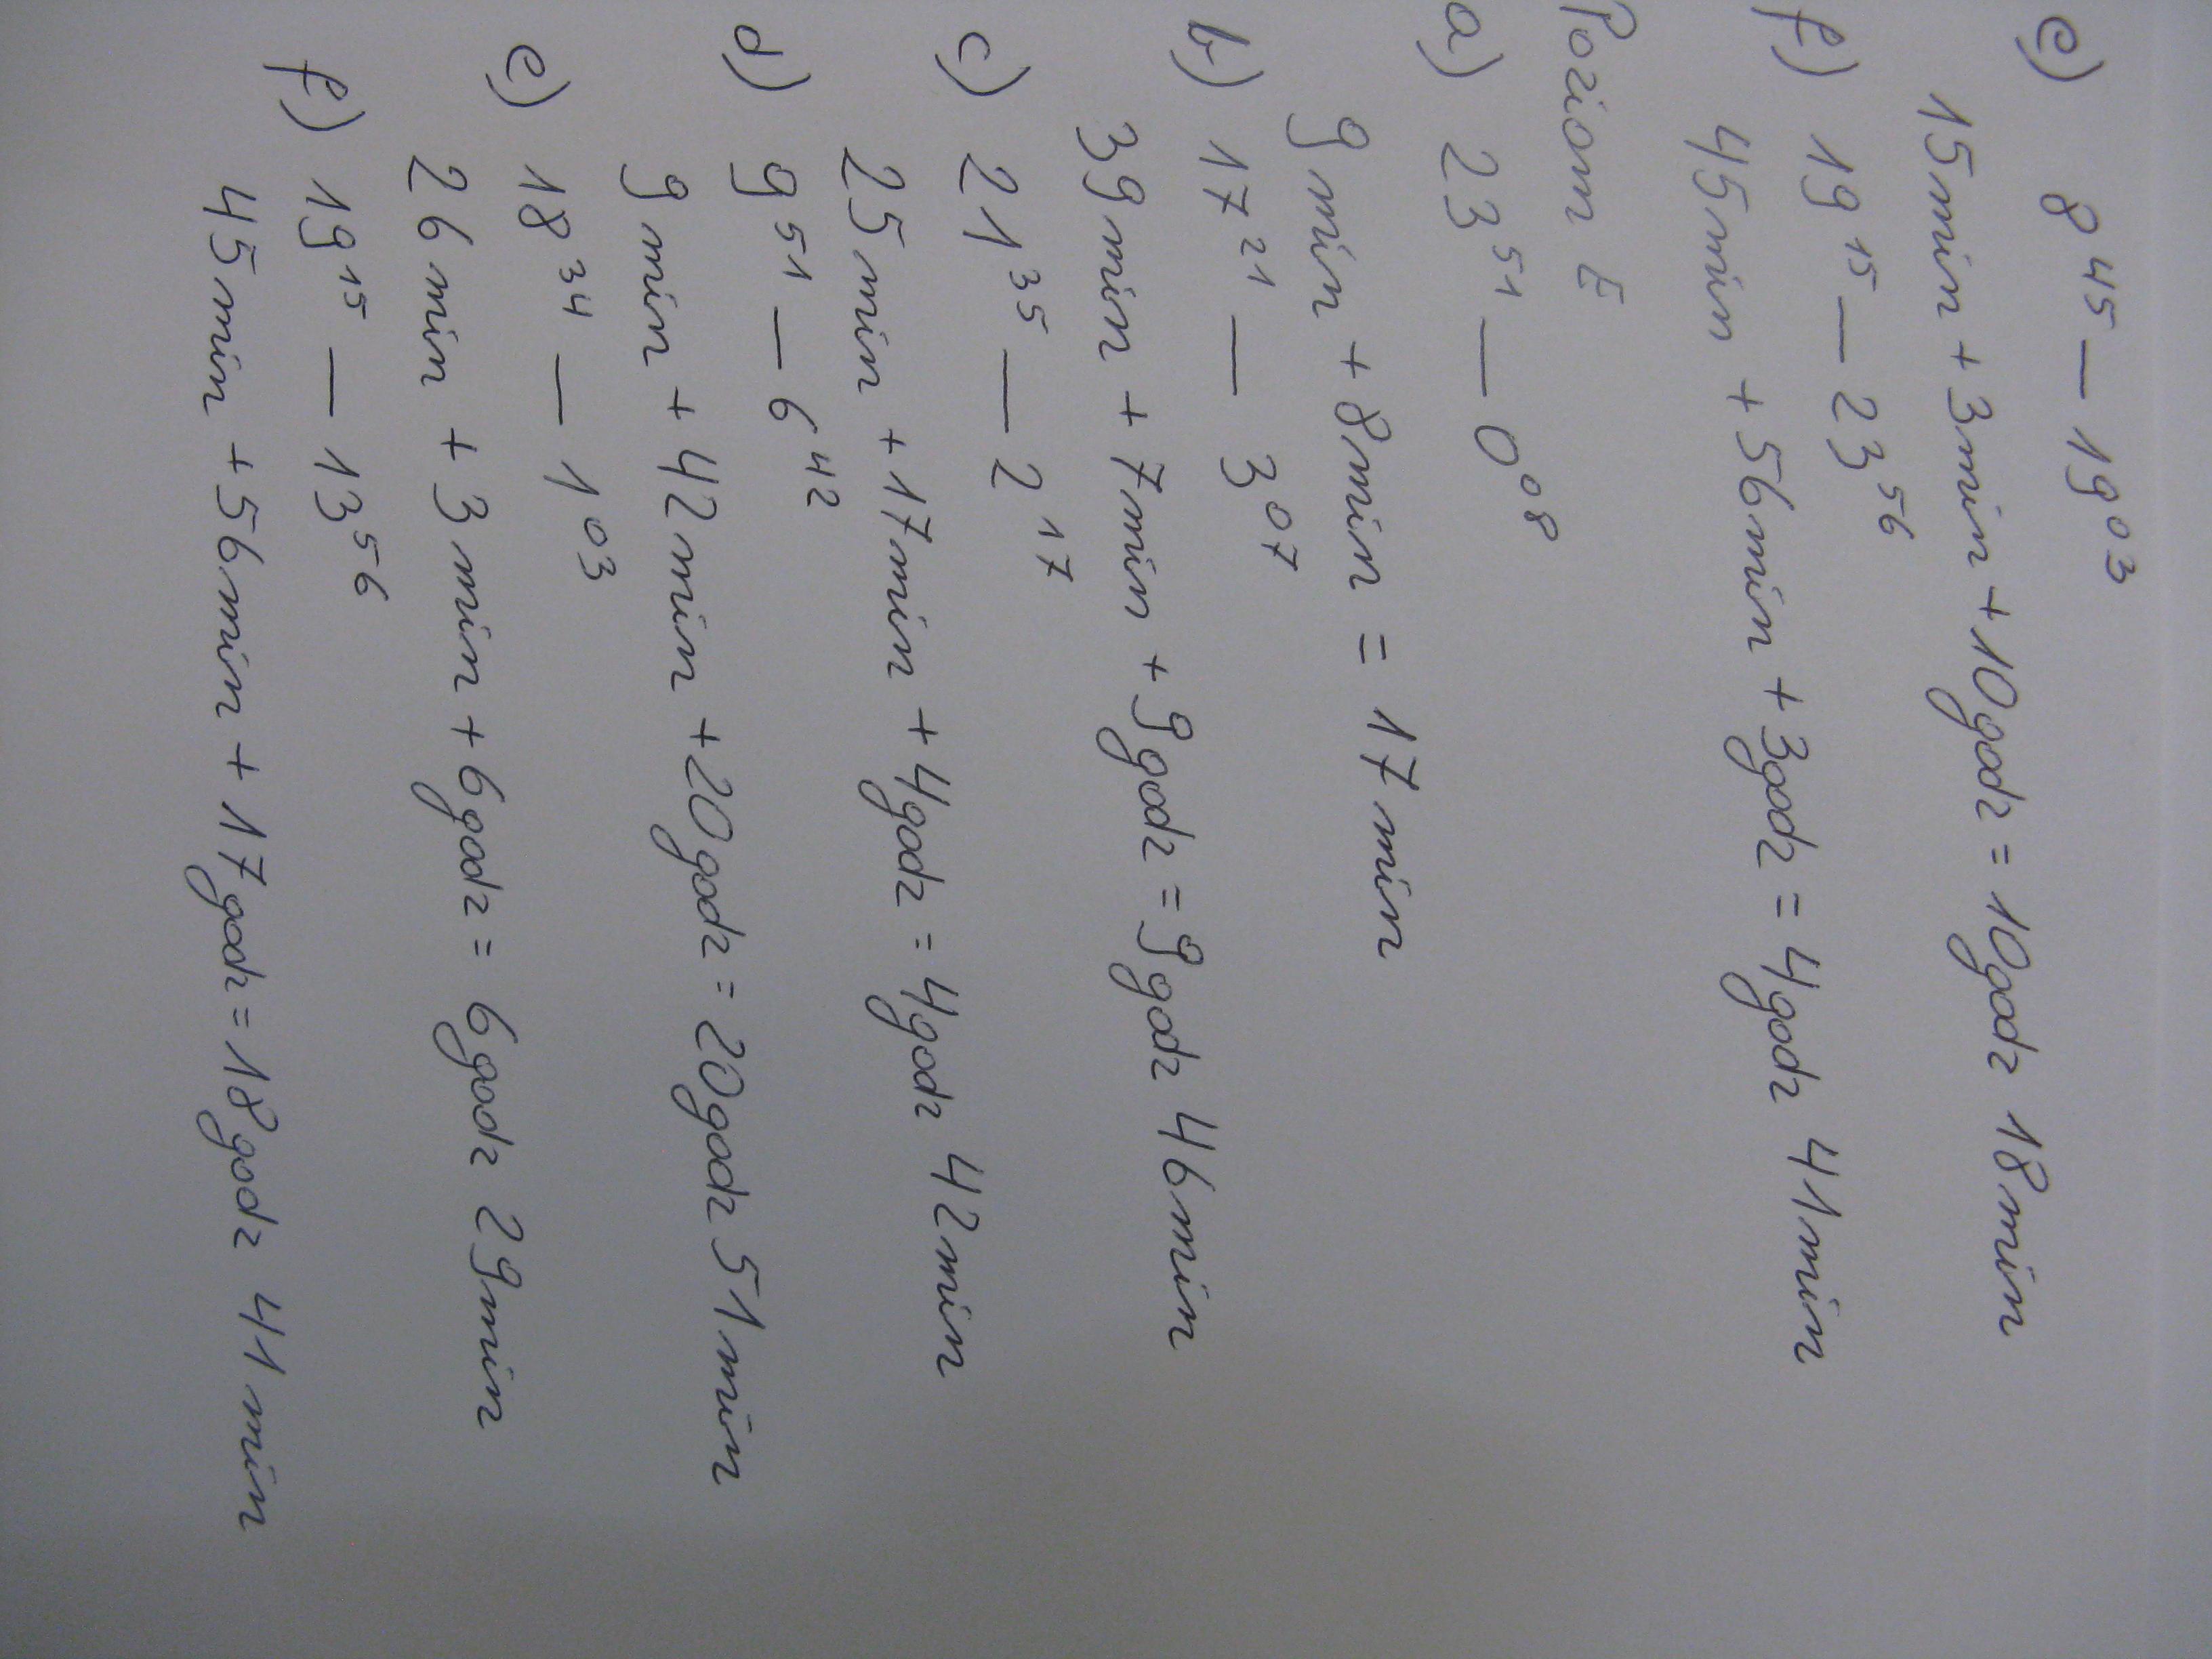 e) 8⁴⁵ — 19⁰³
15min + 3min + 10godz = 10godz 18min
f) 19¹⁵ — 23⁵⁶
45min + 56min + 3godz = 4godz 41min
Poziom E
a) 23⁵¹ — 0⁰⁸
9min + 8min = 17min
b) 17²¹ — 3⁰⁷
39min + 7min + 9godz = 9godz 46min
c) 21³⁵ — 2¹⁷
25min + 17min + 4godz = 4godz 42min
d) 9⁵¹ — 6⁴²
9min + 42min + 20godz = 20godz 51min
e) 18³⁴ — 1⁰³
26min + 3min + 6godz = 6godz 29min
f) 19¹⁵ — 13⁵⁶
45min + 56min + 17godz = 18godz 41min